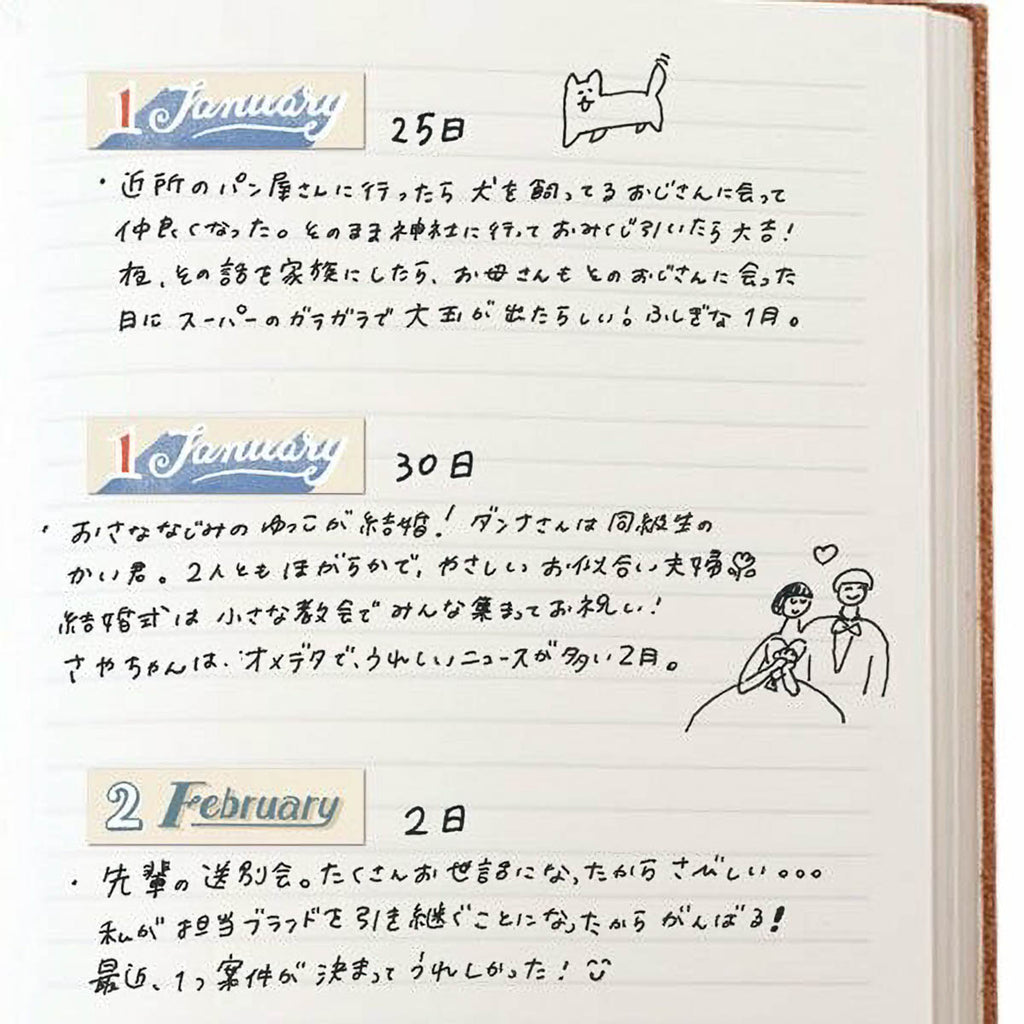 1 January 25日
・近所のパン屋さんに行ったら犬を飼ってるおじさんに会って
仲良くなった。そのまま神社に行っておみくじ引いたら大吉!
夜、その話を家族にしたら、お母さんもそのおじさんに会った
日にスーパーのガラガラで大玉が出たらしい!ふしぎな1月。
1 January 30日
・おさななじみのゆっこが結婚!ダンナさんは同級生の
かい君。2人ともほがらかで、やさしいお似合い夫婦
結婚式は小さな教会でみんな集まってお祝い!
さやちゃんは、オメデタで、うれしいニュースが多い2月。
2 February 2日
・先輩の送別会。たくさんお世話になったからさびしい。。。
私が担当ブランドを引き継ぐことになったからがんばる!
最近、1つ案件が決まってうれしかった!